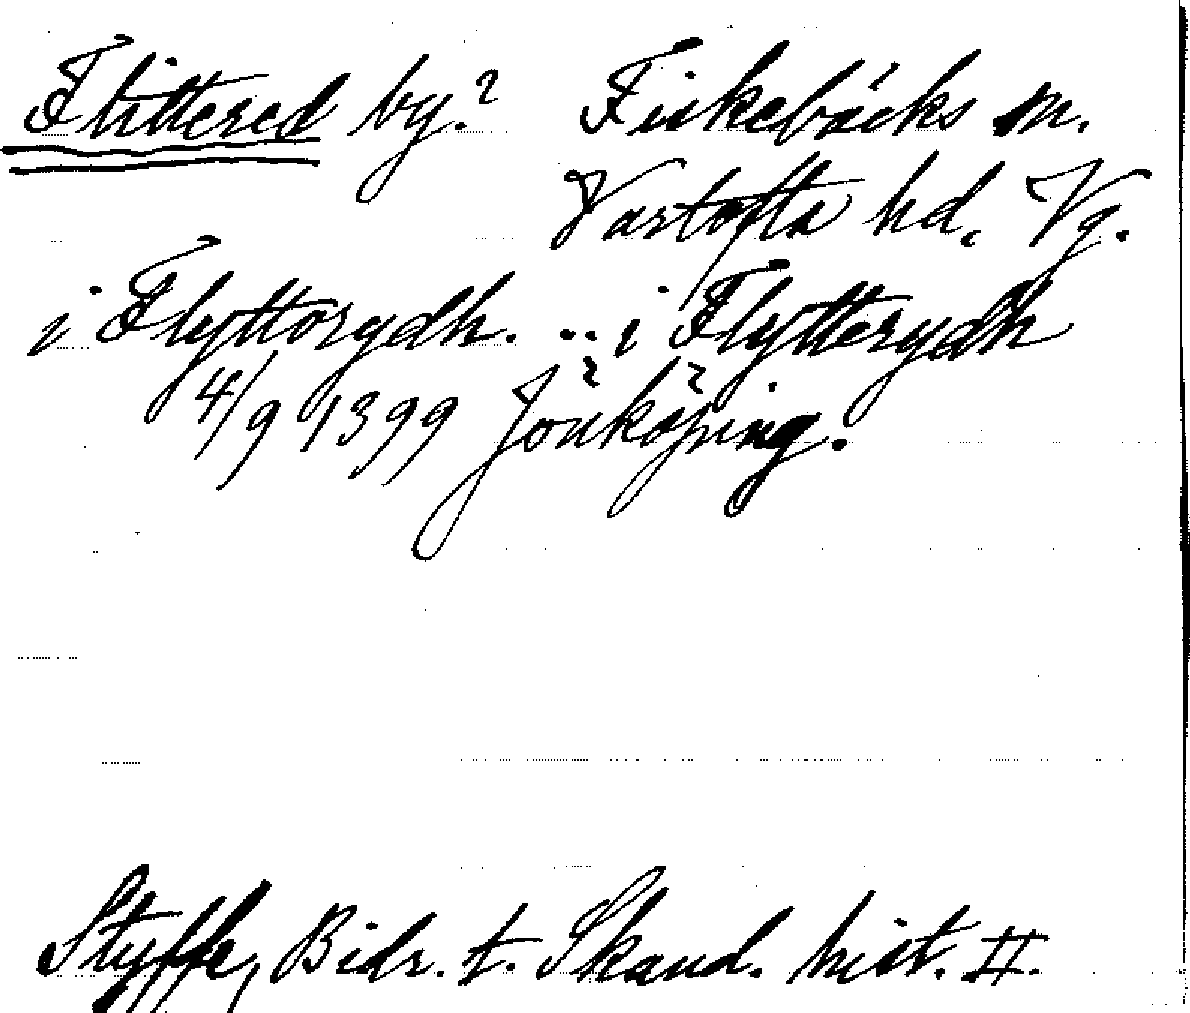 Flittered by.? Fiskebäcks sn.
Vartofta hd. Vg.
i Flyttorydh. .. i Flytterydh
4/9 1399 Jönköping.
Styffe, Bidr. t. Skand. hist. II.